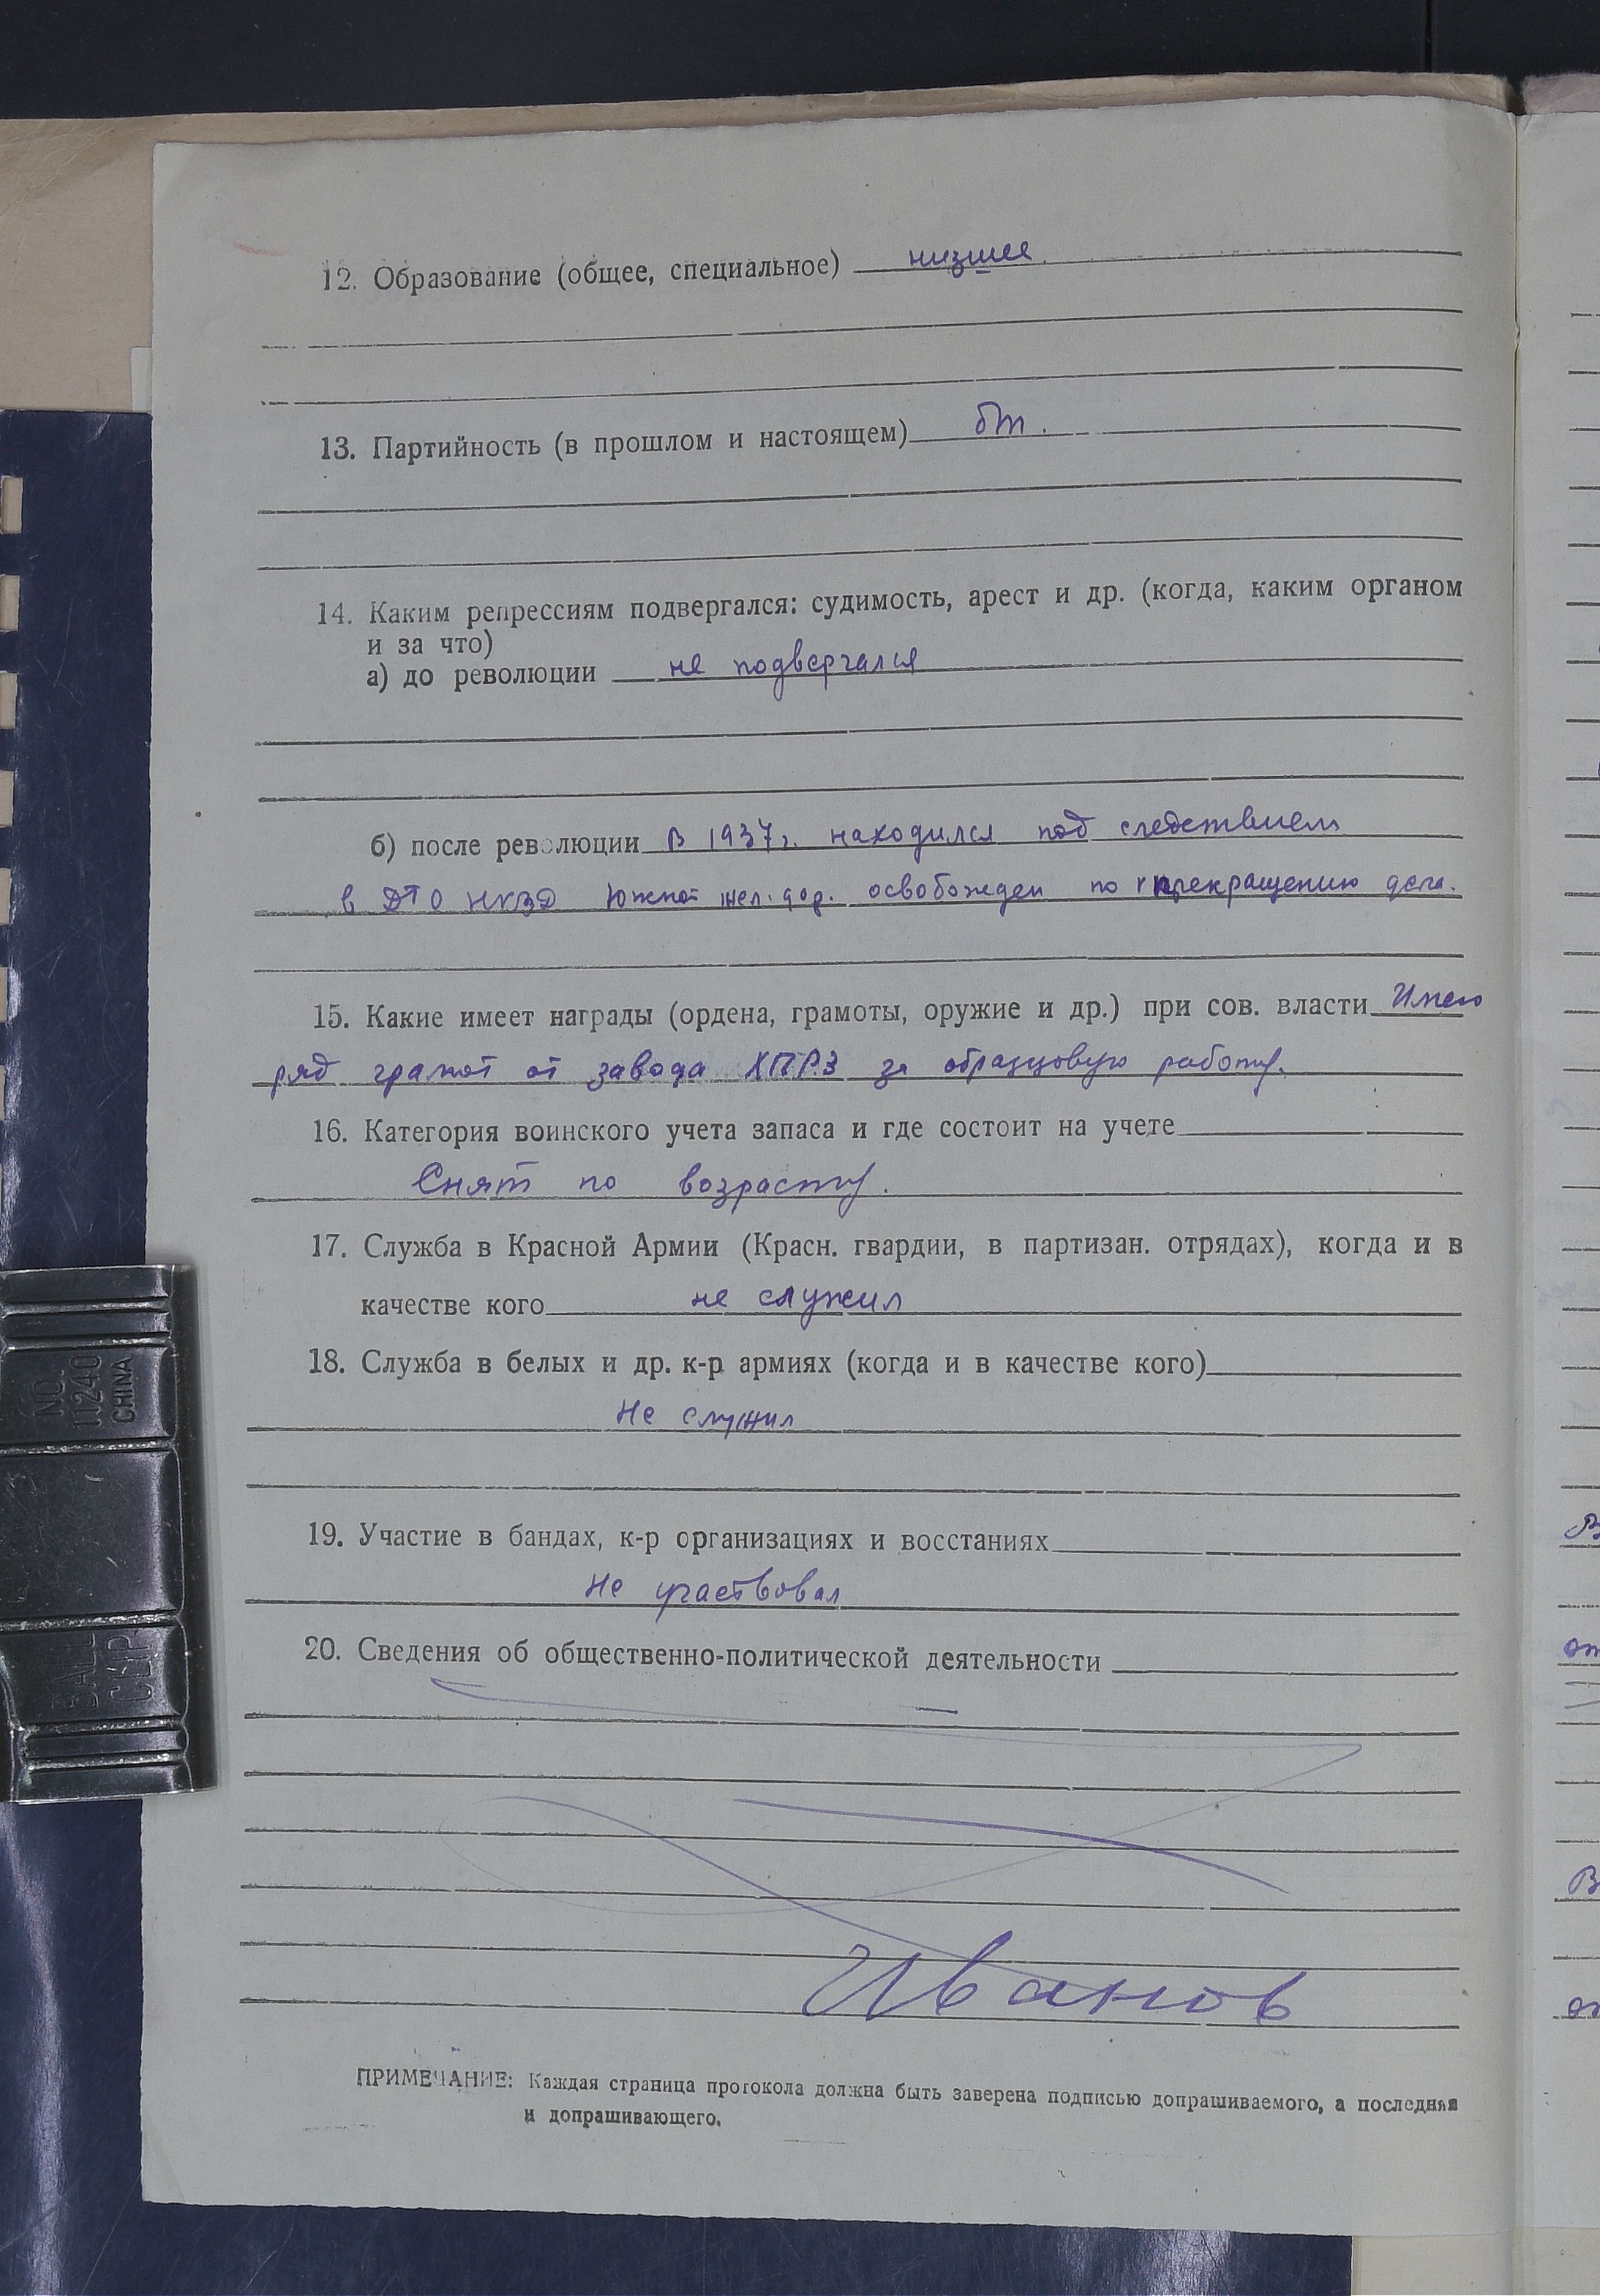 12. Образование (общее, специальное) низшее.
13. Партийность (в прошлом и настоящем) бп.
14. Каким репрессиям подвергался: судимость, арест и др. (когда, каким органом
и за что)
а) до революции не подвергался
б) после революции В 1937г. находился под следствием
в ДТО НКВД Южной жел. дор. освобожден по прекращению дела.
15. Какие имеет награды (ордена, грамоты, оружие и др.) при сов. власти Имею
ряд грамот от завода ХПРЗ за образцовую работу.
16. Категория воинского учета запаса и где состоит на учете
Снят по возрасту.
17. Служба в Красной Армии (Красн. гвардии, в партизан. отрядах), когда и в
качестве кого не служил
18. Служба в белых и др. к-р армиях (когда и в качестве кого)
Не служил
19. Участие в бандах, к-р организациях и восстаниях
Не участвовал
20. Сведения об общественно-политической деятельности
—
Иванов
ПРИМЕЧАНИЕ: Каждая страница протокола должна быть заверена подписью допрашиваемого, а последняя
и допрашивающего.
NO.
11240
CHINA
BALL
CLIP